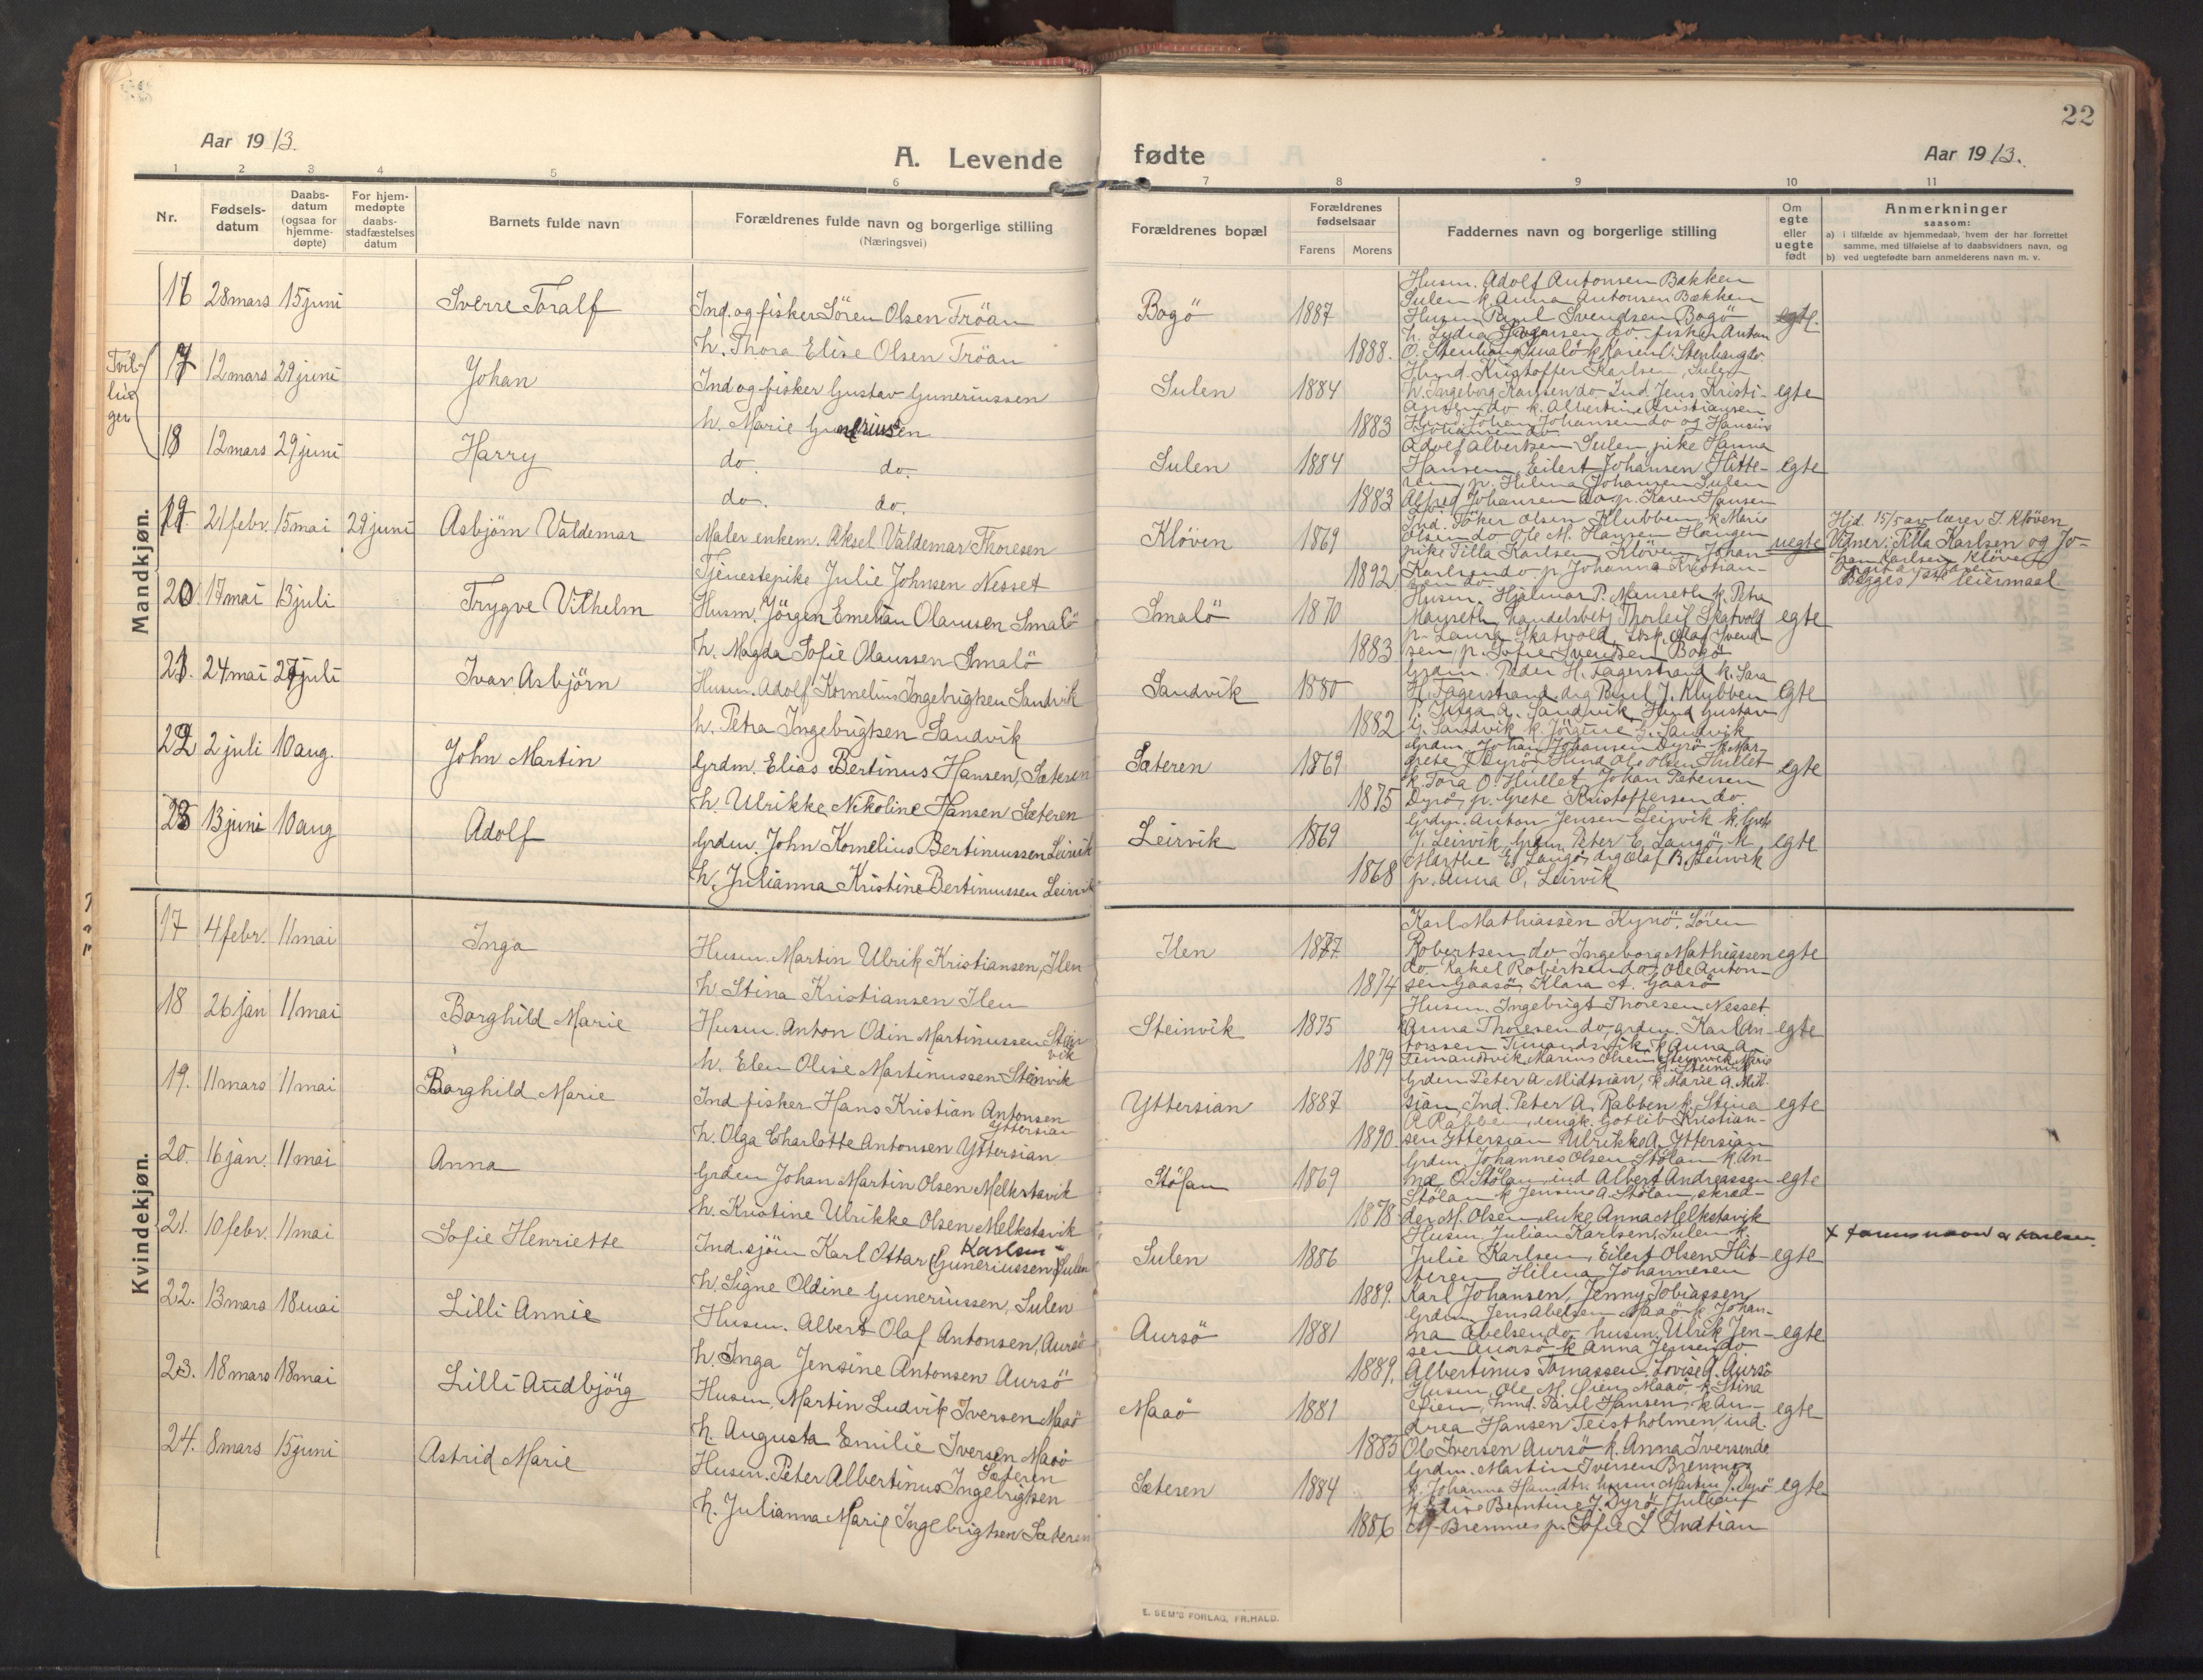 22
Aar 1913.
A. Levende fødte
Aar 1913.
1 2 3 4 5 6 7 8 9 10 11
Nr.
Fødsels-
datum
Daabs-
datum
(ogsaa for
hjemme-
døpte)
For hjem-
medøpte
daabs-
stadfæstelses
datum
Barnets fulde navn
Forældrenes fulde navn og borgerlige stilling
(Næringsvei)
Forældrenes bopæl
Forældrenes
fødselsaar
Farens Morens
Faddernes navn og borgerlige stilling
Om
egte
eller
uegte
født
Anmerkninger
saasom:
a) i tilfælde av hjemmedaab, hvem der har forrettet
samme, med tilføielse af to daabsvidners navn, og
b) ved uegtefødte barn anmelderens navn m. v.
Mandkjøn.
16 28 mars 15 juni Sverre Toralf
Ind. og fisker Sören Olsen Tröan
h. Thora Elise Olsen Tröan
Bogö 1887 1888. egte.
Husm. Adolf Antonsen Bakken
Sulen k. Anna Antonsen Bækken
Husm. Paul Svendsen Bogö
Tvil-
lin
ger
17 12 mars 29 juni Johan
Ind og fisker Gustav Guneriussen
h. Marie Guneriusen
Sulen 1884 1883 egte
Kristoffer Karlsen, Sulen
h. Ingeborg Karlsen do Ind. Jens Kristi-
ansen do k. Albertine Kristiansen
18 12 mars 29 juni Harry
do. do.
do. do.
Sulen 1884 1883 egte
Adolf Albertsen Sulen, pike Hanna
Hansen, Eilert Johansen Hitte-
ren, p. Hilma Johansen Sulen
Alfred Johansen do. p. Karen Hansen
19. 21 febr. 15 mai 29 juni Asbjörn Valdemar
Maler enkem. Aksel Valdemar Thoresen
Tjenestepike Julie Johnsen Nesset
Kløven 1869 1892 uegte
Olsen Klubben k. Marie
Olsen do Ole M. Hansen Haugen
pike Tilla Karlsen, Kløven, Johan
Karlsen do. p. Johanna Kristian-
sen do.
Hjd. 15/5 av lærer J. Kløven
Vidner: Tilla Karlsen og Jo-
han Karlsen Kløven
Begges leiermaal.
20. 17 mai 13 juli Trygve Vilhelm
Husm. Jörgen Emelian Olaussen Smalö
h. Magda Sofie Olaussen Smalö
Smalö 1870 1883 egte
Husm. Hjalmar P. Mauseth k. Petra
Mauseth, handelsbetj Thorleif Skatvold
p. Laura Skatvold, Olaf Svend-
sen, p. Sofie Svendsen Bogö
21. 24 mai 27 juli Ivar Asbjörn
Husm. Adolf Kornelius Ingebrigtsen Sandvik
h. Petra Ingebrigtsen Sandvik
Sandvik 1880 1882 egte
Grdm. Peder H. Fagerstrand k. Sara
H. Fagerstrand, drg Paul J. Klubben
p. Inga A. Sandvik, Gustav
G. Sandvik k. Jörgine G. Sandvik
22 2 juli 10 aug. John Martin
Grdm. Elias Bertinus Hansen, Sæteren
h. Ulrikke Nikoline Hansen Sæteren
Sæteren 1869 1875 egte
Grdm. Johan Johansen Dyrö k. Mar-
grete J. Dyrö, Ole Olsen Hullet
k. Tora O. Hullet, Johan Petersen
Dyrö, p. Grete Kristoffersen do.
23 13 juni 10 aug Adolf
Grdm. John Kornelius Bertinussen Leirvik
h. Julianna Kristine Bertinussen Leirvik
Leirvik 1869 1868 egte
Grdm. Anton Jensen Leirvik k. Grete
J. Leirvik, Grdm. Peter E. Langö, k
Marthe E. Langö, drg Olaf B. Leirvik
p. Anna O. Leirvik
Kvindekjøn.
17 4 febr. 11 mai Inga
Husm. Martin Ulrik Kristiansen, Ilen
h. Stina Kristiansen Ilen
Ilen 1877 1874 egte
Karl Mathiassen Kyrö, Sören
Robertsen do, Ingeborg Mathiassen
do. Rakel Robertsen do, Ole Anton-
sen Gaasö, Klara A. Gaasö
18 26 jan 11 mai Borghild Marie
Husm. Anton Odin Martinussen Stein
vik
h. Elen Olise Martinussen Steinvik
Steinvik 1875 1879 egte
Husm. Ingebrigt Thoresen Nesset
k Anna Thoresen do, grdm. Karl An-
tonsen Timandsvik, k Anna A.
Timandsvik, Marius Olsen Steinvik, Marie
O. Steinvik
19. 11 mars 11 mai Borghild Marie
Ind fisker Hans Kristian Antonsen
Yttersian
h. Olga Charlotte Antonsen Yttersian
Yttersian 1887 1890. egte
Grdm Peter A Midtsian, k Marie A. Midt-
sian, Ind. Peter A. Rabben k. Stina
A Rabben, ungk. Gotlib Kristian-
sen Yttersian Ulrikke A. Yttersian
20. 16 jan. 11 mai Anna
Grdm Johan Martin Olsen Melkstavik
h. Kristine Ulrikke Olsen Melkstavik
Stölan 1869 1878 egte
Grdm. Johannes Olsen Stölan k. An-
na O. Stölan, ind Albert Andreassen
Stölan k Jensine A. Stölan, skræd-
der M. Olsen, enke Anna Melkstavik
21. 10 febr. 11 mai Sofie Henriette
Ind. sjöm Karl Ottar (Guneriussen) Karlsen Sulen
h. Signe Oldine Guneriussen, Sulen
Sulen 1886 1889. egte
Husm Julian Karlsen, Sulen k.
Julie Karlsen, Eilert Olsen Hit-
teren, Hilma Johannesen
Karl Johansen, Jenny Tobiassen
x farens navn er Karlsen
22. 13 mars 18 mai Lilli Annie
Husm. Albert Olaf Antonsen, Aursö
h. Inga Jensine Antonsen Aursö
Aursö 1881 1889. egte
Grdm. Jens Abelsen Maaö k. Johan-
na Abelsen do, husm. Ulrik Jen-
sen Aursö k Anna Jensen do
Albertinus Tomassen, Lovise A. Aursö
23. 18 mars 18 mai Lilli Audbjörg
Husm. Martin Ludvik Iversen Maaö
h. Augusta Emilie Iversen Maaö
Maaö 1881 1885 egte
Husm. Ole M. Øien, Maaö, k. Stina
Øien, Paul Hansen, k. An-
drea Hansen Teistholmen, ind.
Ole Iversen Aursö k. Anna Iversen do
24. 8 mars 15 juni Astrid Marie
Husm. Peter Albertinus Ingebrigtsen
Sæteren
h. Julianna Marie Ingebrigtsen Sæteren
Sæteren 1884 1886 egte
Grdm. Martin Iversen Bremnes
husm Martin J. Dyrö
Berntine J. Dyrö, Julian
M. Bremnes p. Sofie L Indtian
E. SEM'S FORLAG, FR.HALD.